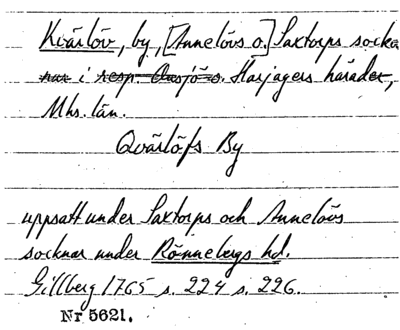 Kvärlöv, by, [Annelövs o.] Saxtorps socke
nar i resp. Onsjö o. Harjagers härader,
Mhs. län.
Qvärlöfs By
uppsatt under Saxtorps och Annelövs
socknar under Rönnebergs hd.
Gillberg 1765 s. 224 s. 226.
Nr 5621.